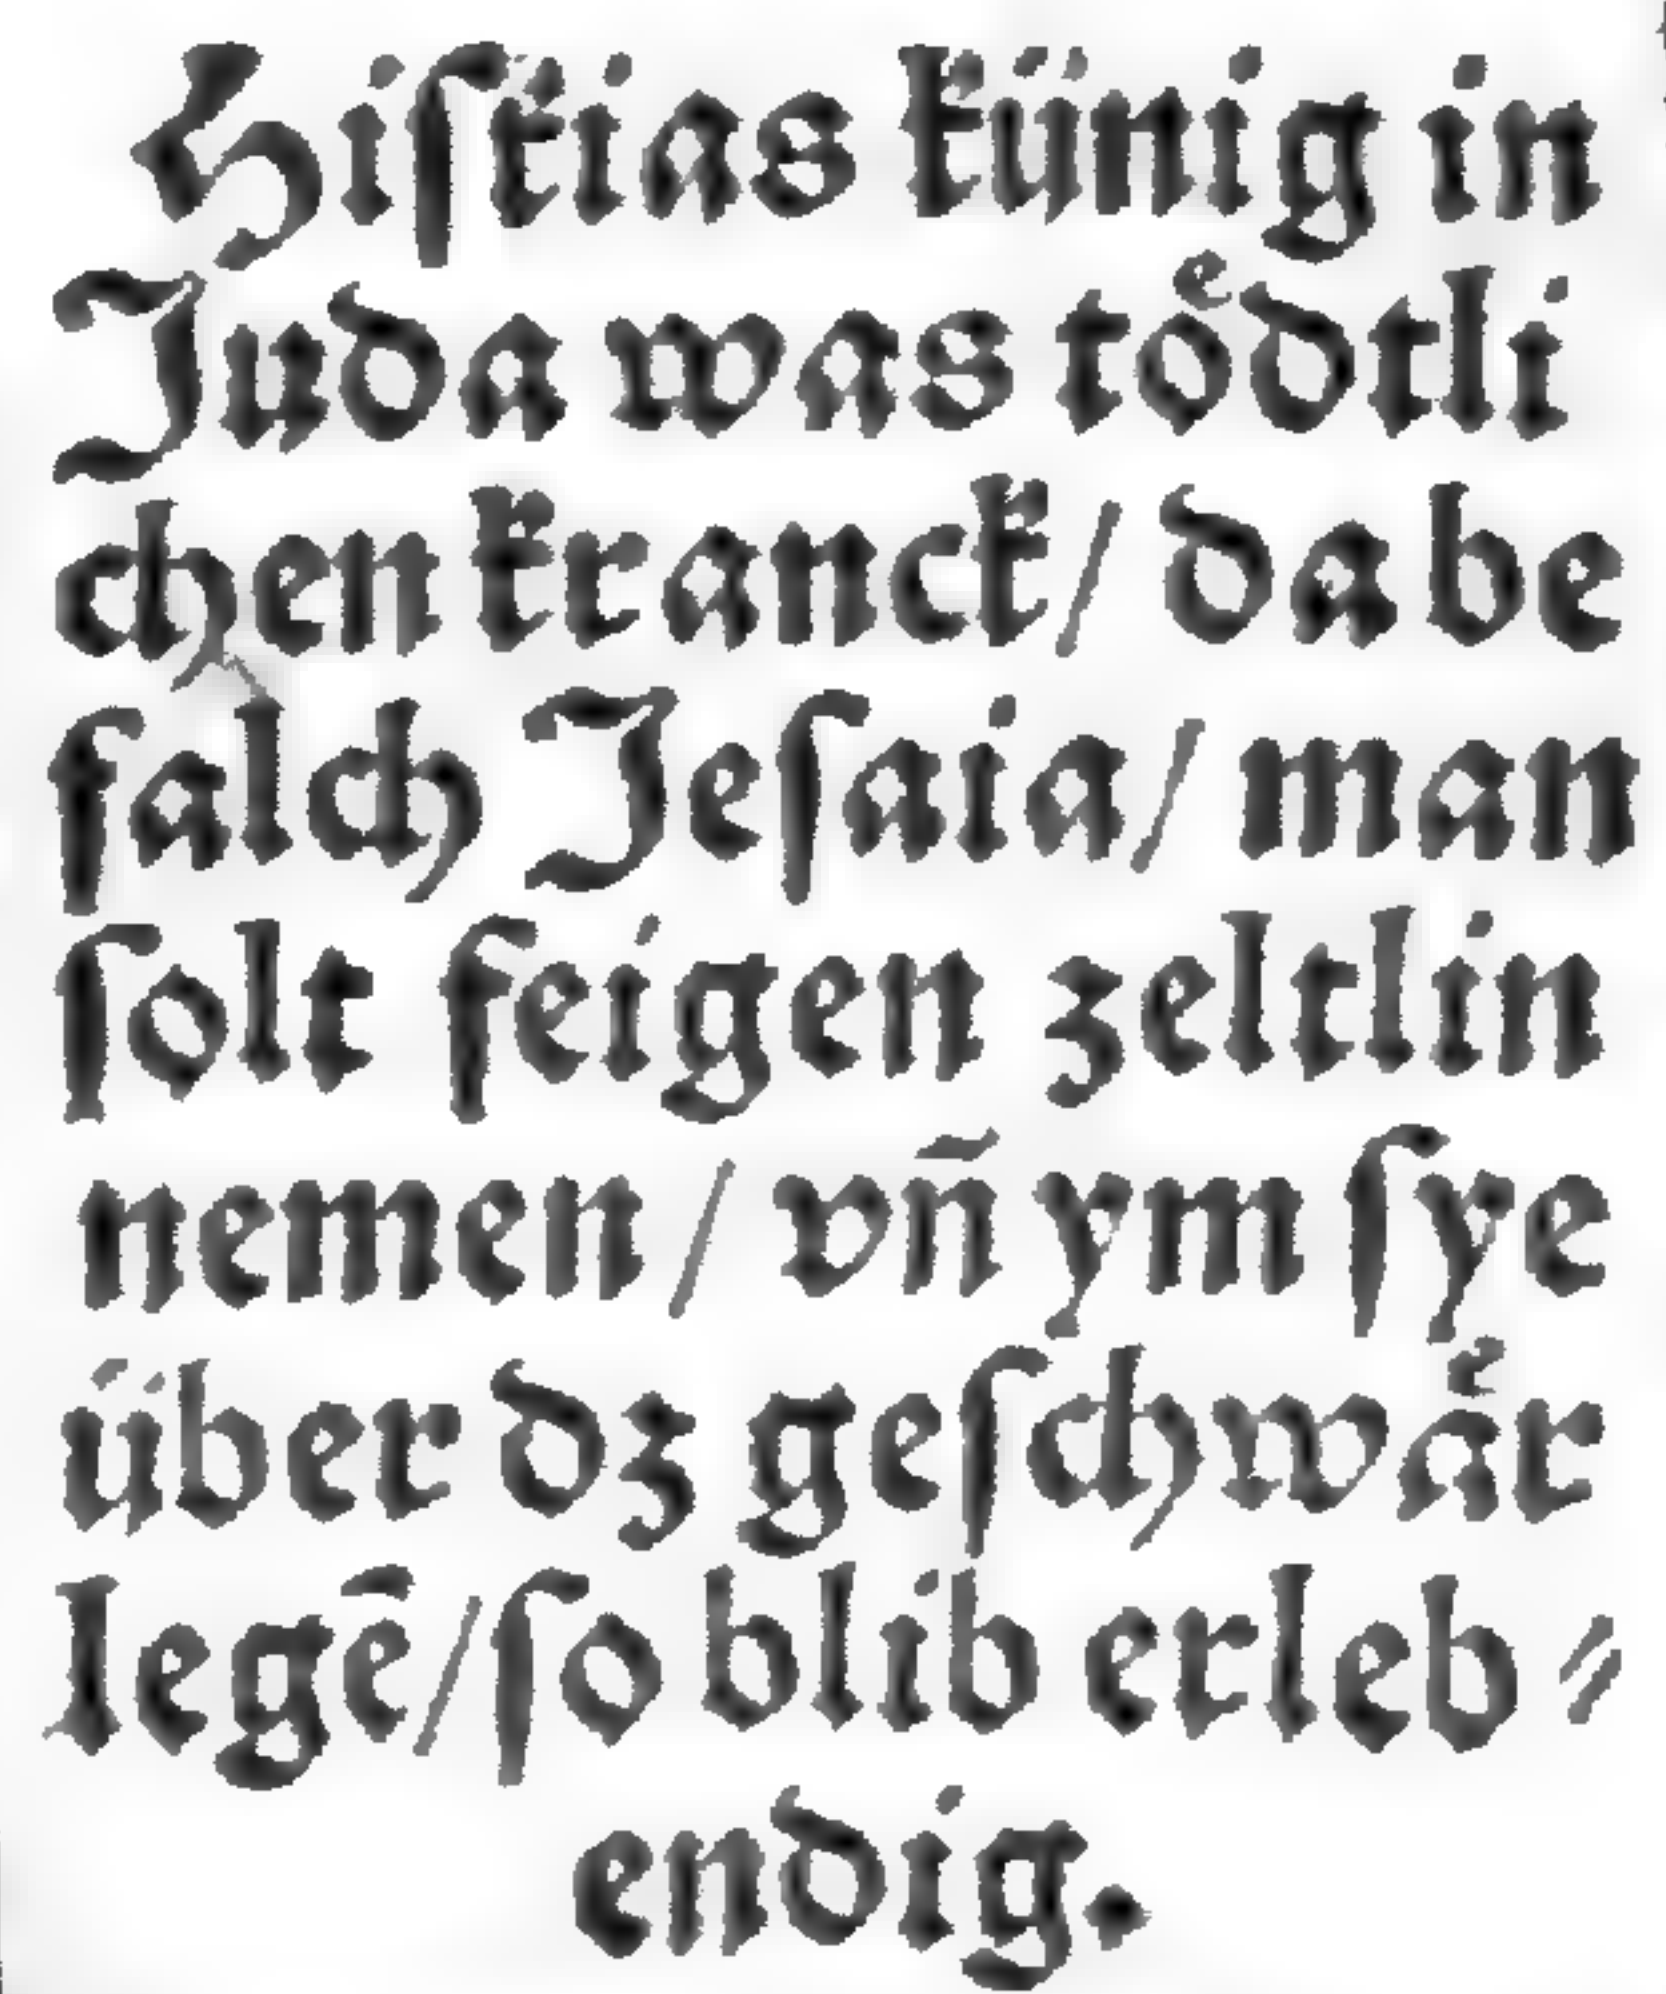 Hiſkias künig in
Juda was toͤdtli
chen kranck/ da be
falch Jeſaia/ man
ſolt feigen zeltlin
nemen/ vñ ym ſye
über dz geſchwaͤr
legē/ſo blib erleb⸗
endig.